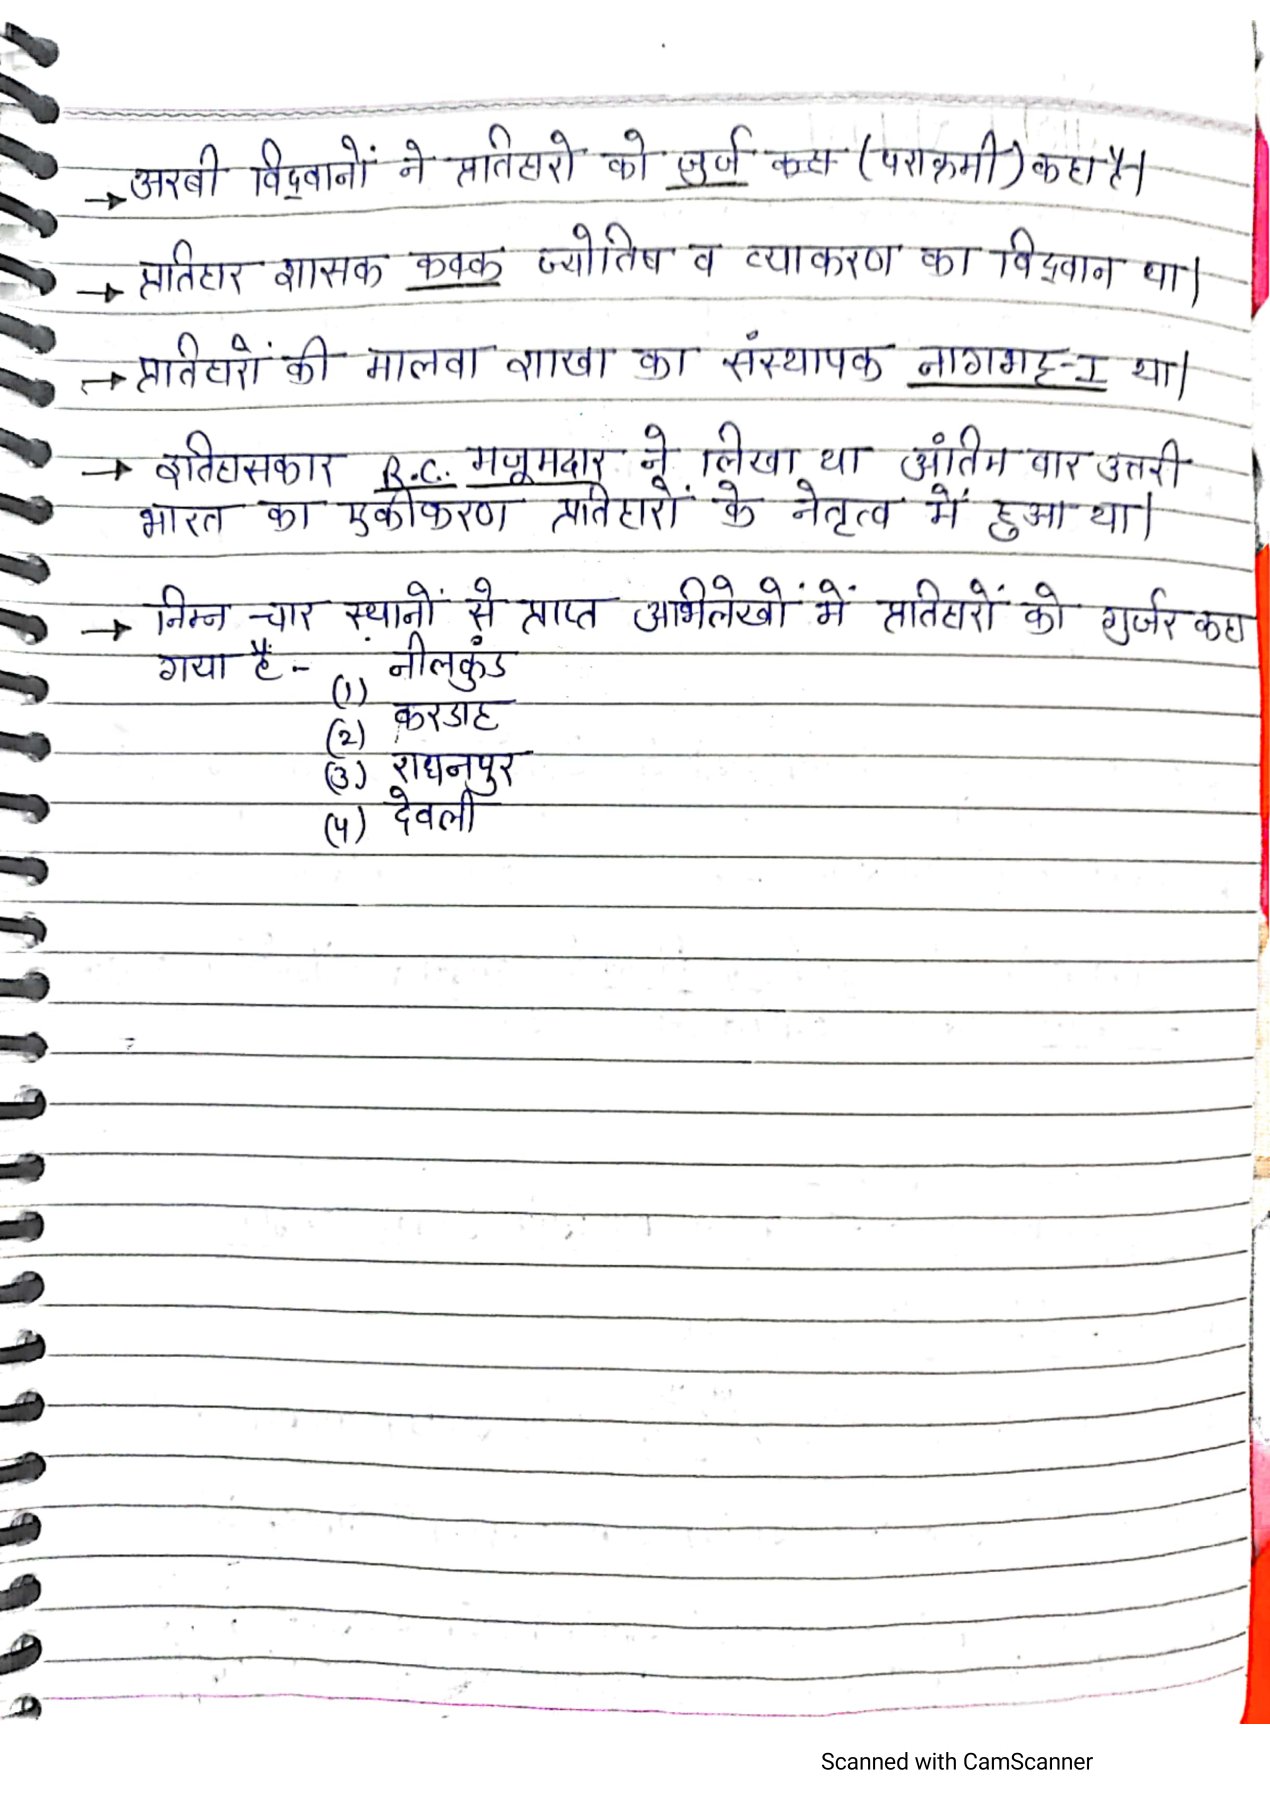 → अरबी विद्वानों ने प्रतिहारो को जुर्ज कहा (पराक्रमी) कहा है।
→ प्रतिहार शासक कक्क ज्योतिष व व्याकरण का विद्वान था।
→ प्रतिहारों की मालवा शाखा का संस्थापक नागभट्ट-I था।
→ इतिहासकार R.C. मजूमदार ने लिखा था अंतिम बार उत्तरी
भारत का एकीकरण प्रतिहारों के नेतृत्व में हुआ था।
→ निम्न चार स्थानों से प्राप्त अभिलेखों में प्रतिहारों को गुर्जर कहा
गया हैं -
(1) नीलकुंड
(2) करडाह
(3) राधनपुर
(4) देवली
Scanned with CamScanner